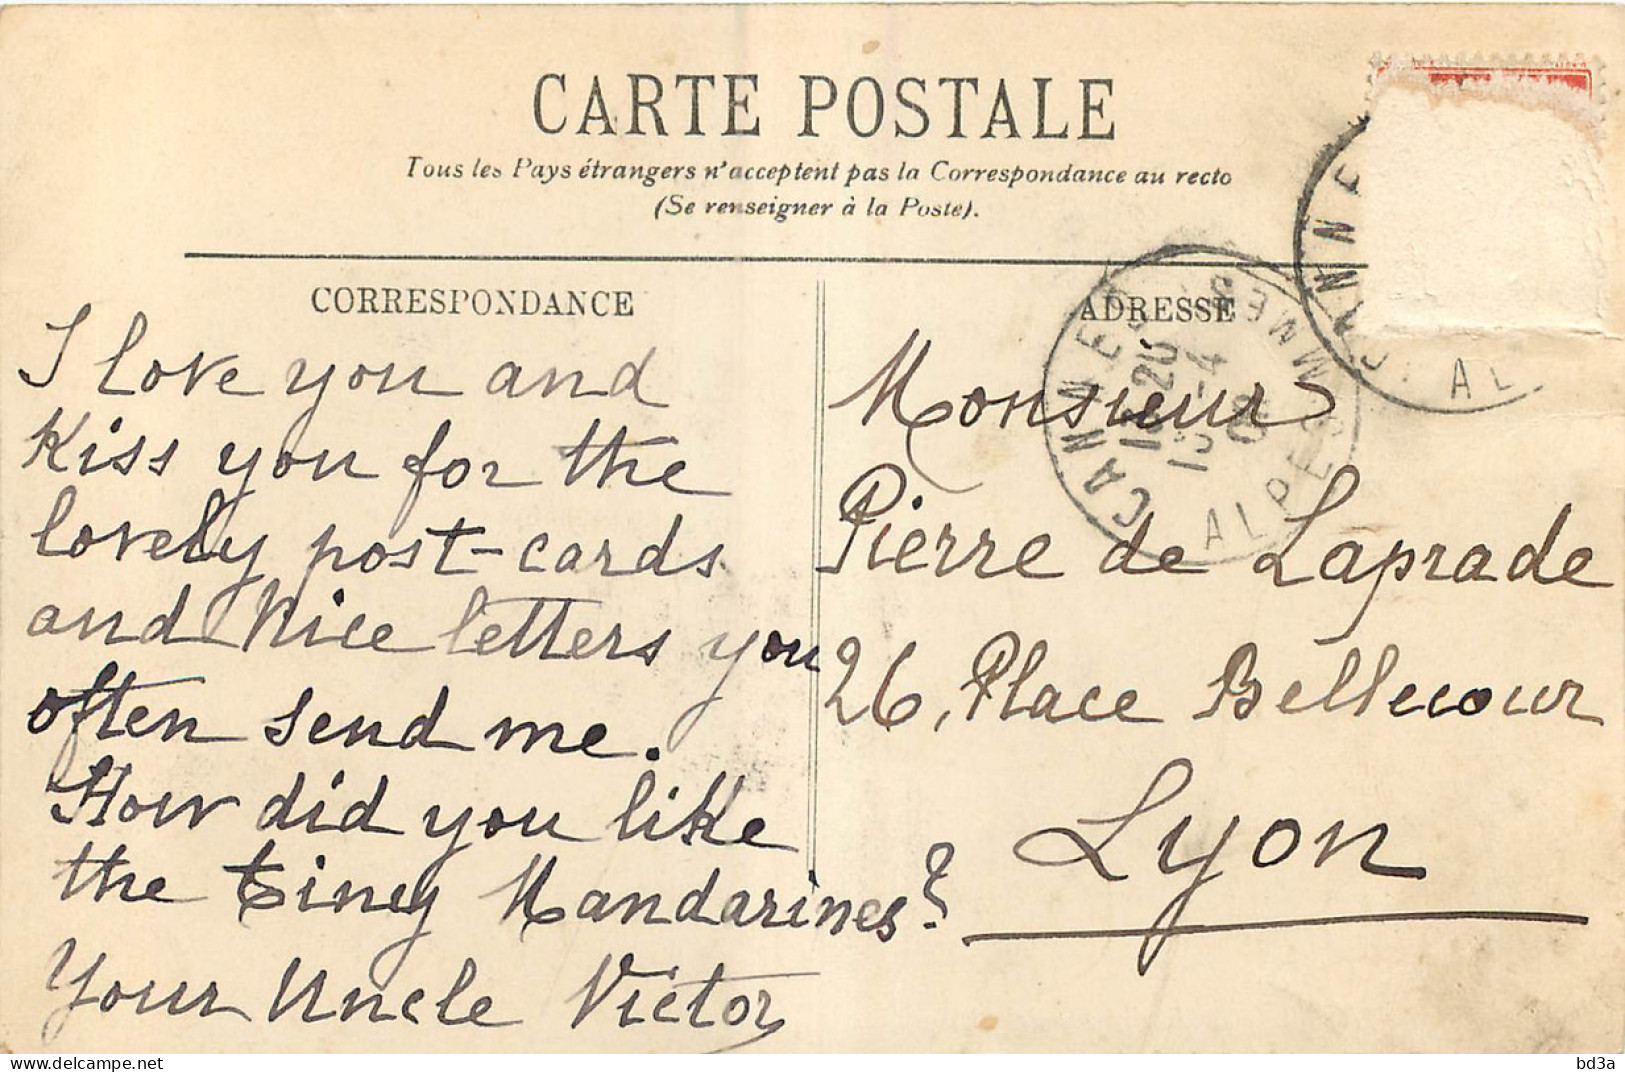 CARTE POSTALE
Tous les Pays étrangers n'acceptent pas la Correspondance au recto
(Se renseigner à la Poste).
CORRESPONDANCE
I love you and
Kiss you for the
lovely post-cards
and Nice letters you
often send me.
How did you like
the tiney Mandarines?
Your Uncle Victor
ADRESSE
Monsieur
Pierre de Laprade
26, Place Bellecour
Lyon
CANNES
ALPES
delcampe.net
bd3a